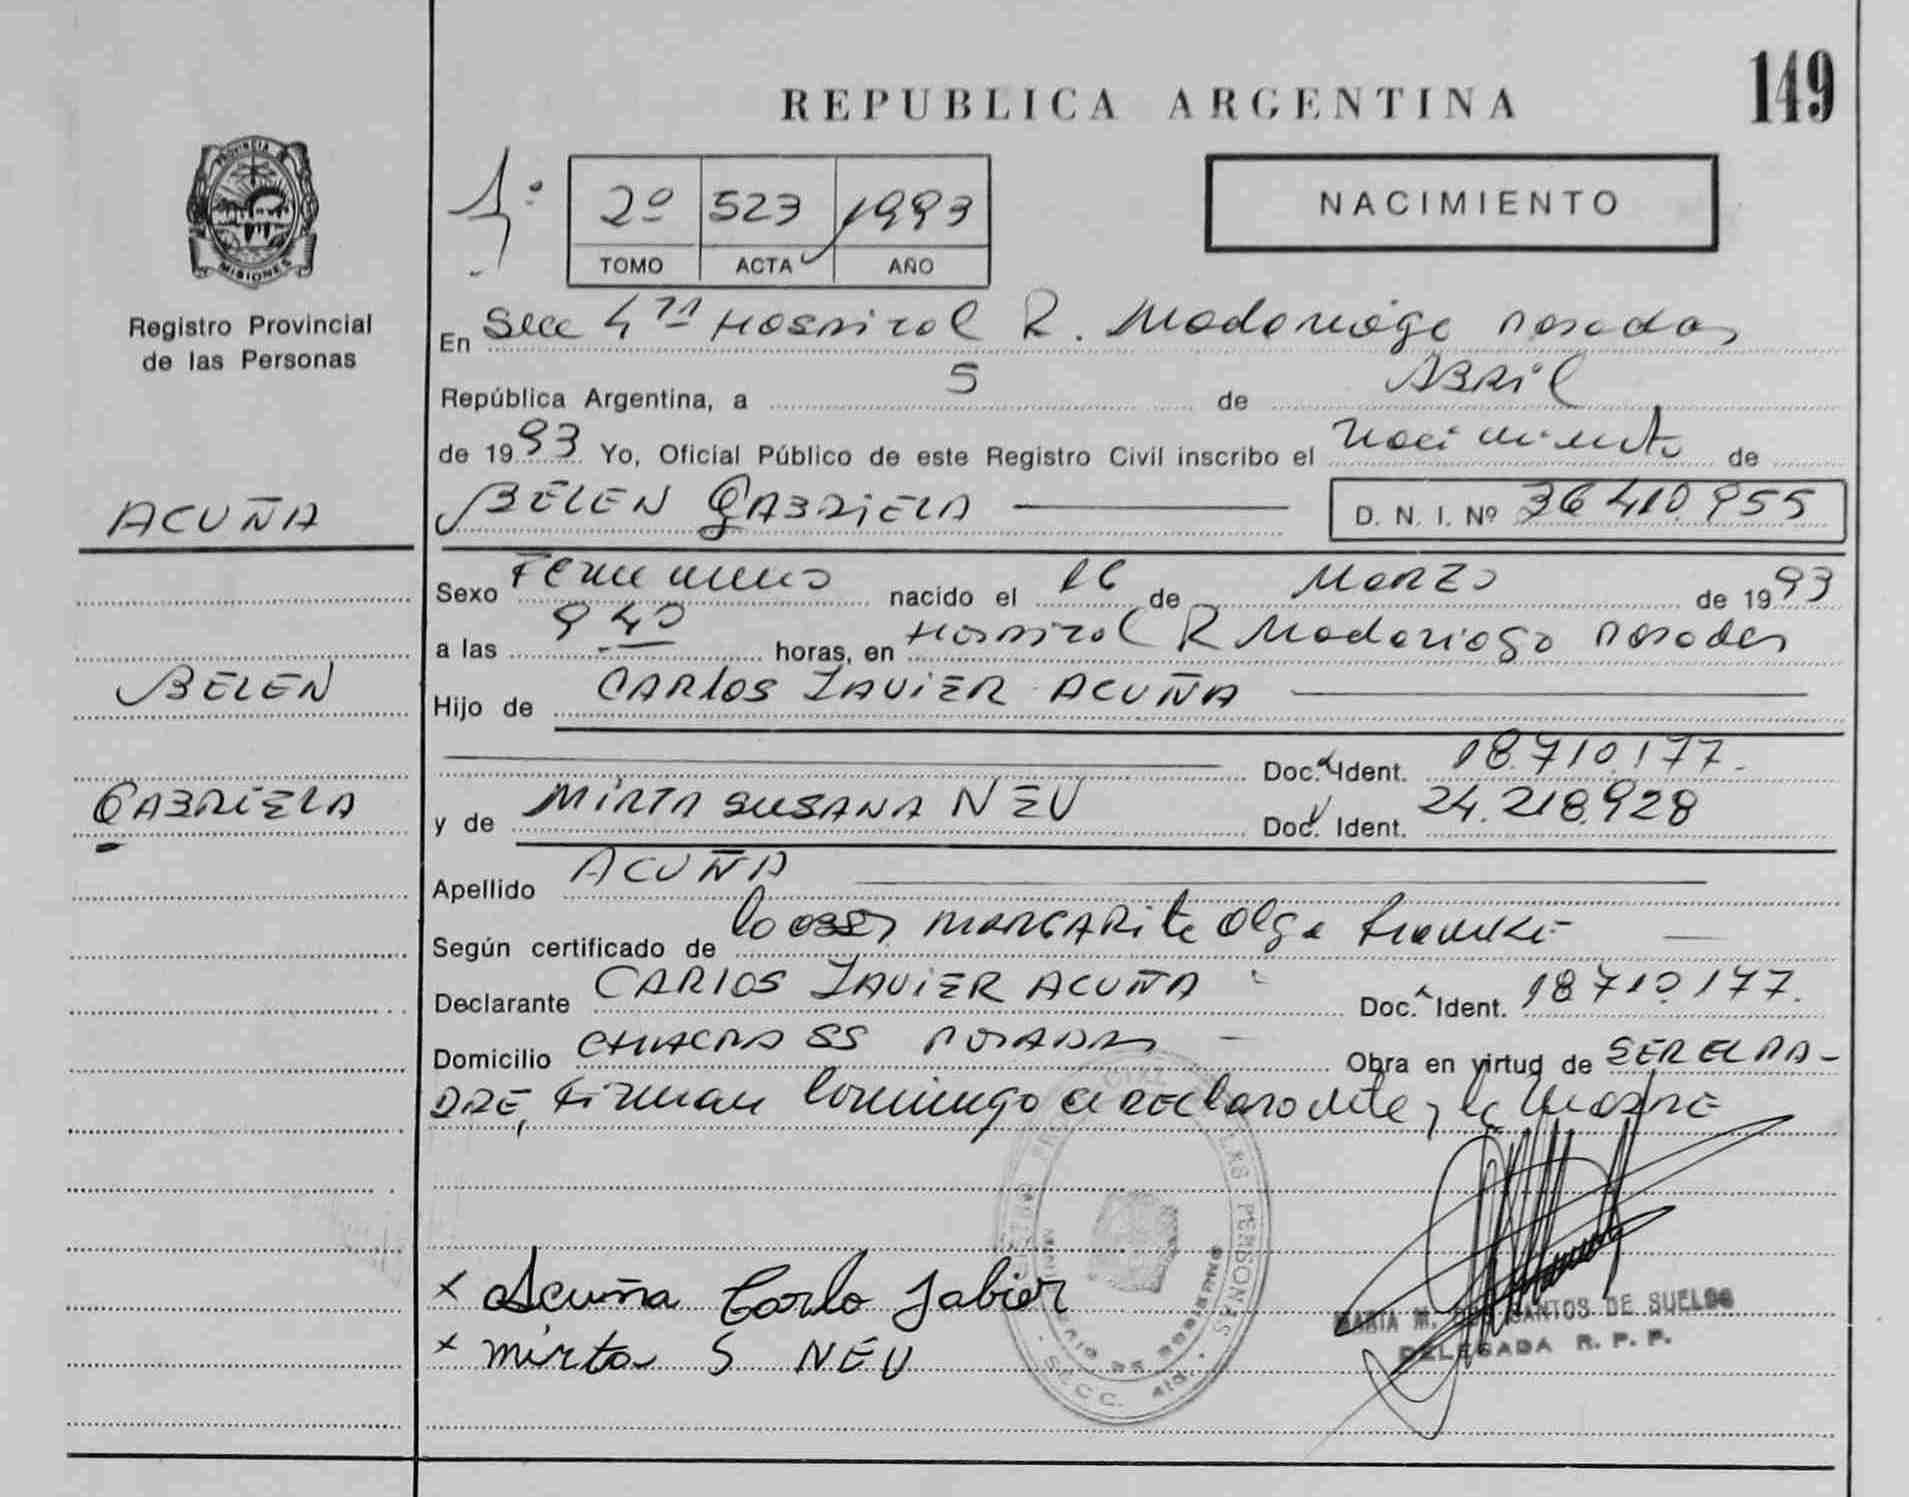 149
REPUBLICA ARGENTINA
PROVINCIA DE
MISIONES
Registro Provincial
de las Personas
1º
2º 523 1993
TOMO ACTA AÑO
NACIMIENTO
En Secc 4ta Hospital R. Madariaga Posadas
República Argentina, a 5 de Abril
de 1993 Yo, Oficial Público de este Registro Civil inscribo el nacimiento de
ACUÑA
BELEN GABRIELA D. N. I. Nº 36 410 955
Sexo Femenino nacido el 16 de Marzo de 1993
a las 9 40 horas, en Hospital R Madariaga Posadas
BELEN
Hijo de CARLOS JAVIER ACUÑA
Doc. Ident. 18.710.177.
GABRIELA
y de MIRTA SUSANA NEU Doc. Ident. 24.218.928
Apellido ACUÑA
Según certificado de MARGARITA Olga
Declarante CARLOS JAVIER ACUÑA Doc. Ident. 18710177.
Domicilio CHACRA POSADAS Obra en virtud de SER EL PA-
DRE, Firman conmigo el declarante y la madre
x Acuña Carlo Jabier
x mirta S NEU
MARIA M. DOS SANTOS DE SUELOS
DELEGADA R. P. P.
LAS PERSONAS
SECC. 4ta.